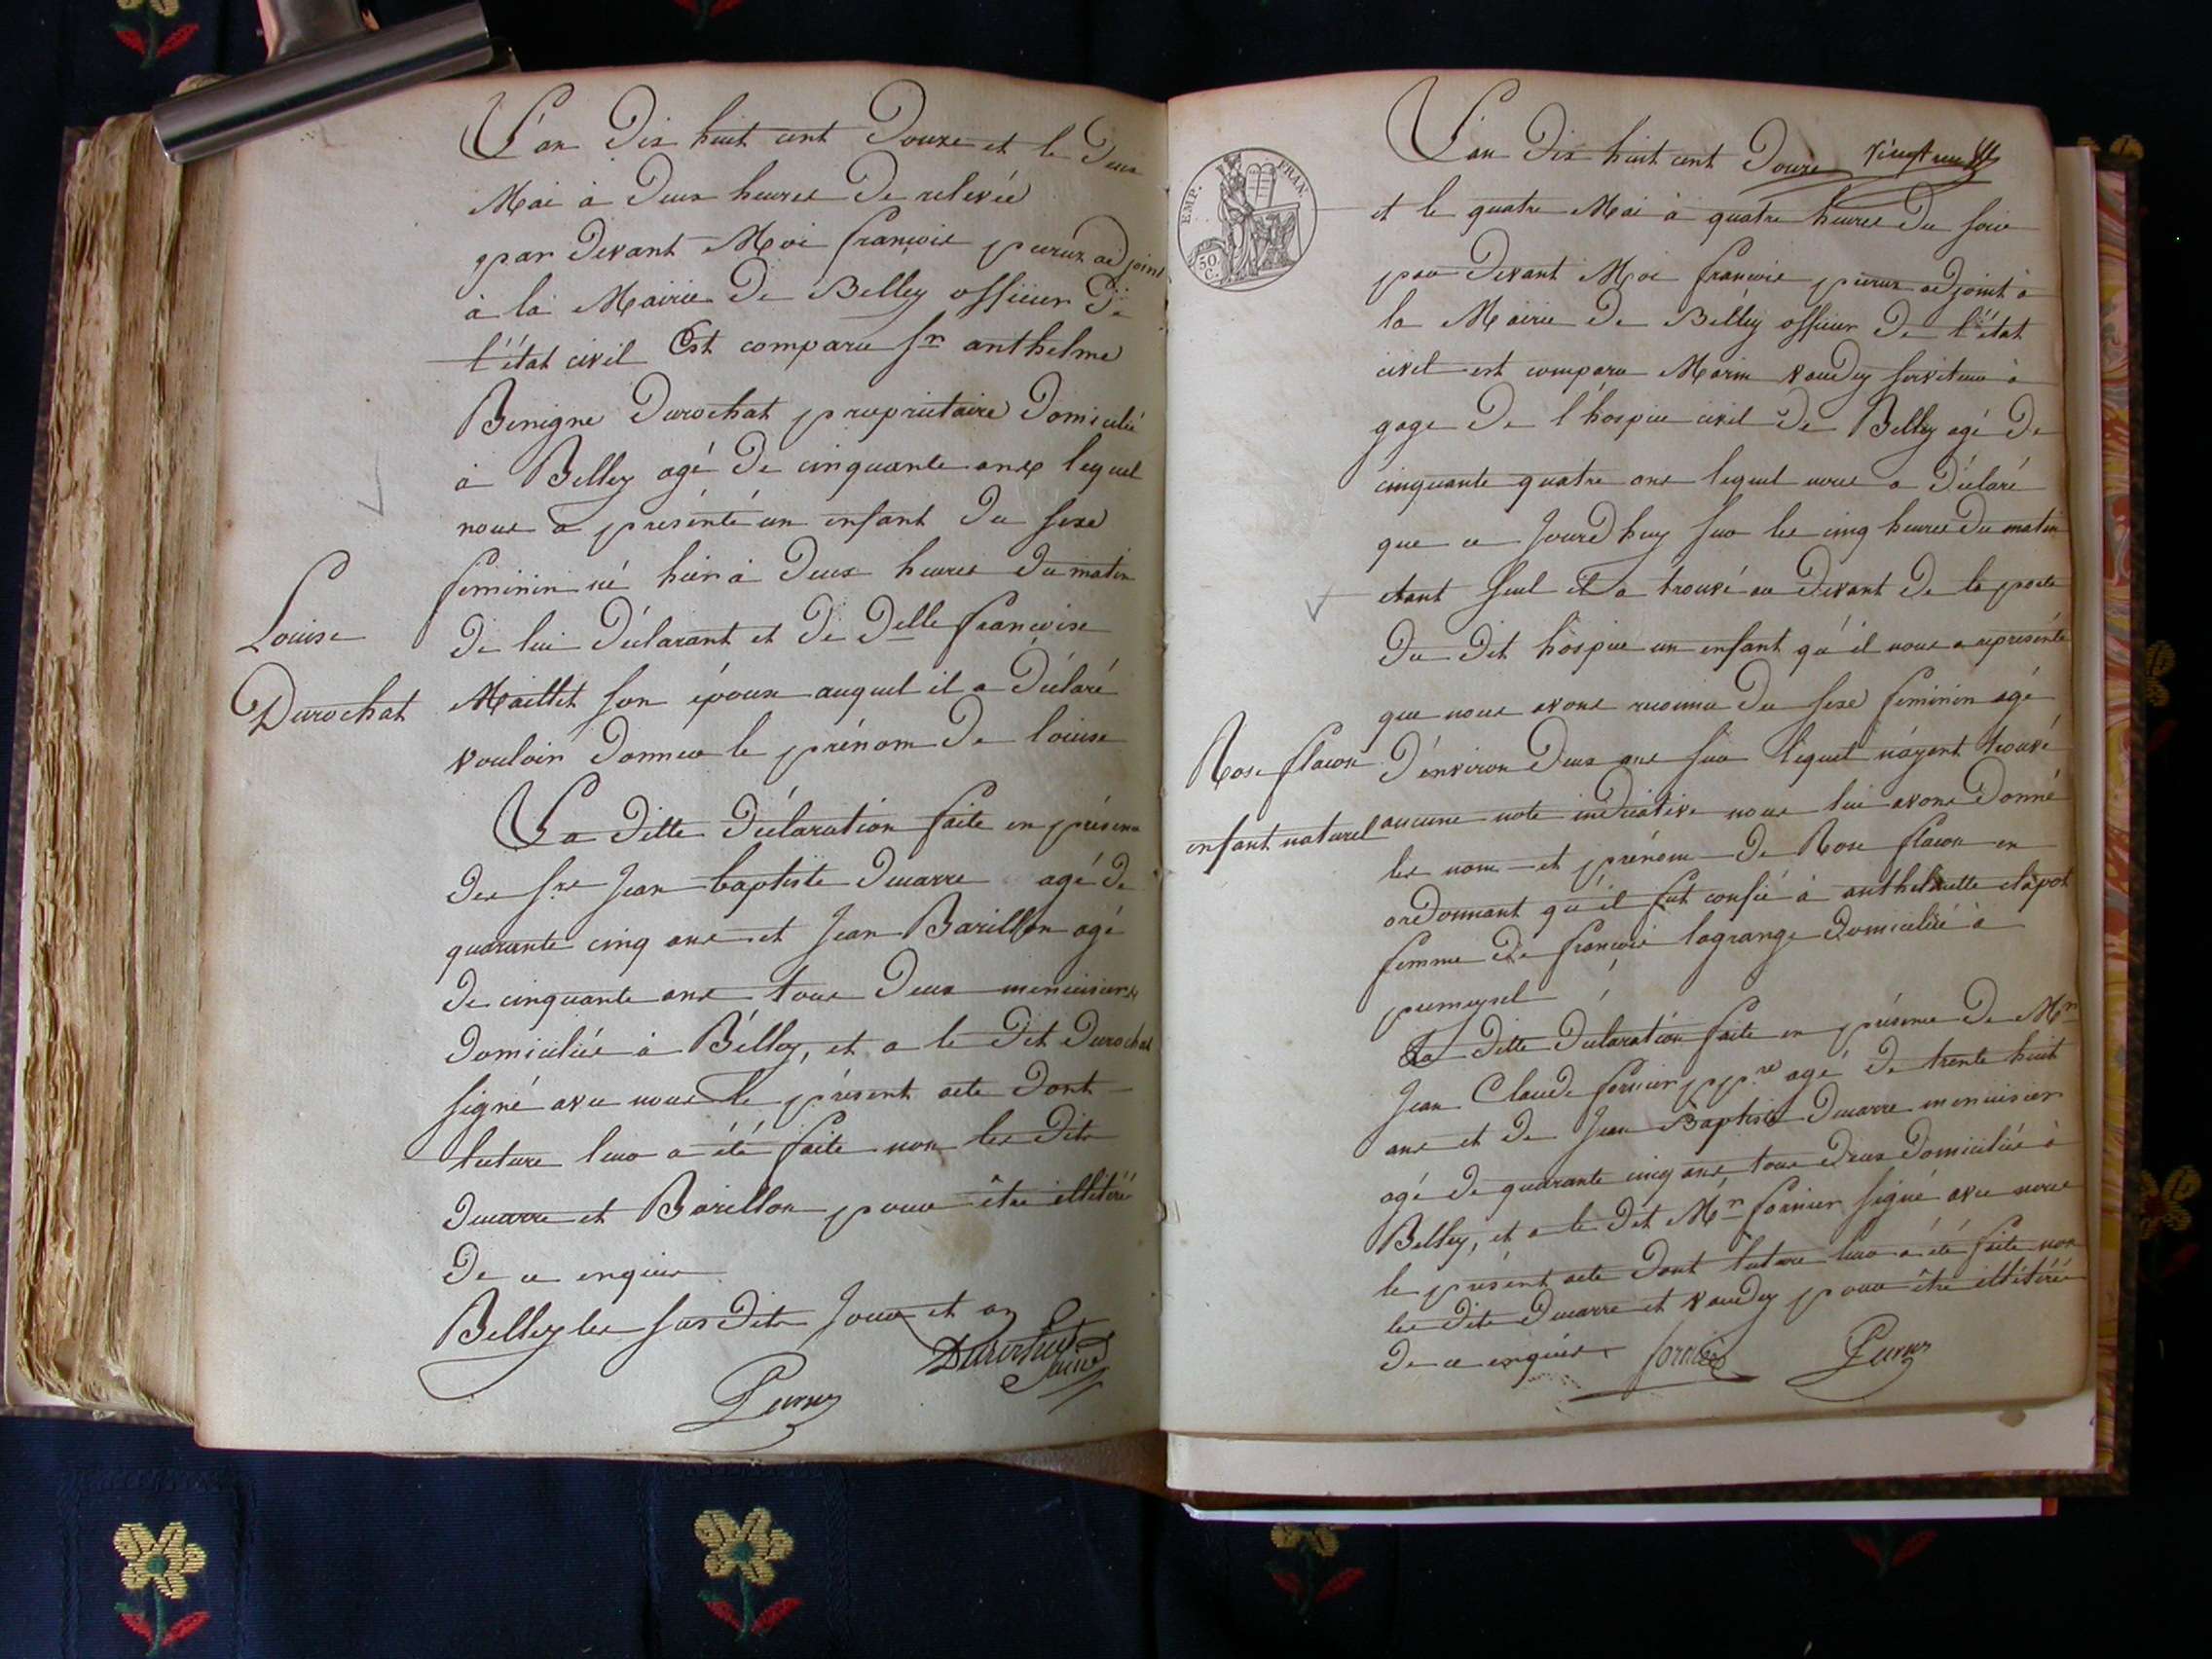 L'an Dix huit cent Douze et le Deux
Mai à Deux heures De relevée
par Devant Moi françois purux adjoint
à la Mairie De Belley officier De
l'état civil Est comparu Sr anthelme
Benigne Durochat propriétaire Domicilié
à Belley agé De cinquante ans lequel
nous a présenté un enfant Du sexe
feminin né hier à Deux heures Du matin
De lui Déclarant et De Delle françoise
Maillet son épouse auquel il a Déclaré
vouloir Donner le prénom De louise
Louise
Durochat
La Ditte Déclaration faite en présence
Des Srs Jean baptiste Ducarre agé De
quarante cinq ans et Jean Barillon agé
De cinquante ans tous Deux menuisiers
Domiciliés à Belley, et a le Dit Durochat
signé avec nous le présent acte Dont
lecture leur a été faite non les Dits
Ducarre et Barillon pour être illitérés
De ce enquis
Belley les sus Dits Jour et an
Durochat
EMP. FRAN.
50 C.
L'an Dix huit cent Douze
et le quatre Mai à quatre heures Du soir
par Devant Moi françois purux adjoint à
la Mairie De Belley officier De l'état
civil est comparu Marin vaudey serviteur à
gage De l'hospice civil De Belley agé De
cinquante quatre ans lequel nous a Déclaré
que ce Jourd'huy sur les cinq heures Du matin
etant seul il a trouvé au Devant De la porte
Du Dit hospice un enfant qu'il nous a représenté
que nous avons reconnu Du sexe feminin agé
D'environ Deux ans sur lequel n'ayant trouvé
aucune note indicative nous lui avons Donné
les nom et prénom De Rose flacon en
ordonnant qu'il fut confié à anthelmette clapot
femme De françois lagrange Domiciliée à
Rose flacon
enfant naturel
La Ditte Déclaration faite en présence De Mr
Jean Claude fornier ppre agé De trente huit
ans et De Jean Baptiste Ducarre menuisier
agé De quarante cinq ans tous Deux Domiciliés à
Belley, et a le Dit Mr fornier signé avec nous
le présent acte Dont lecture leur a été faite non
les Dits Ducarre et vaudey pour être illitérés
De ce enquis fornier